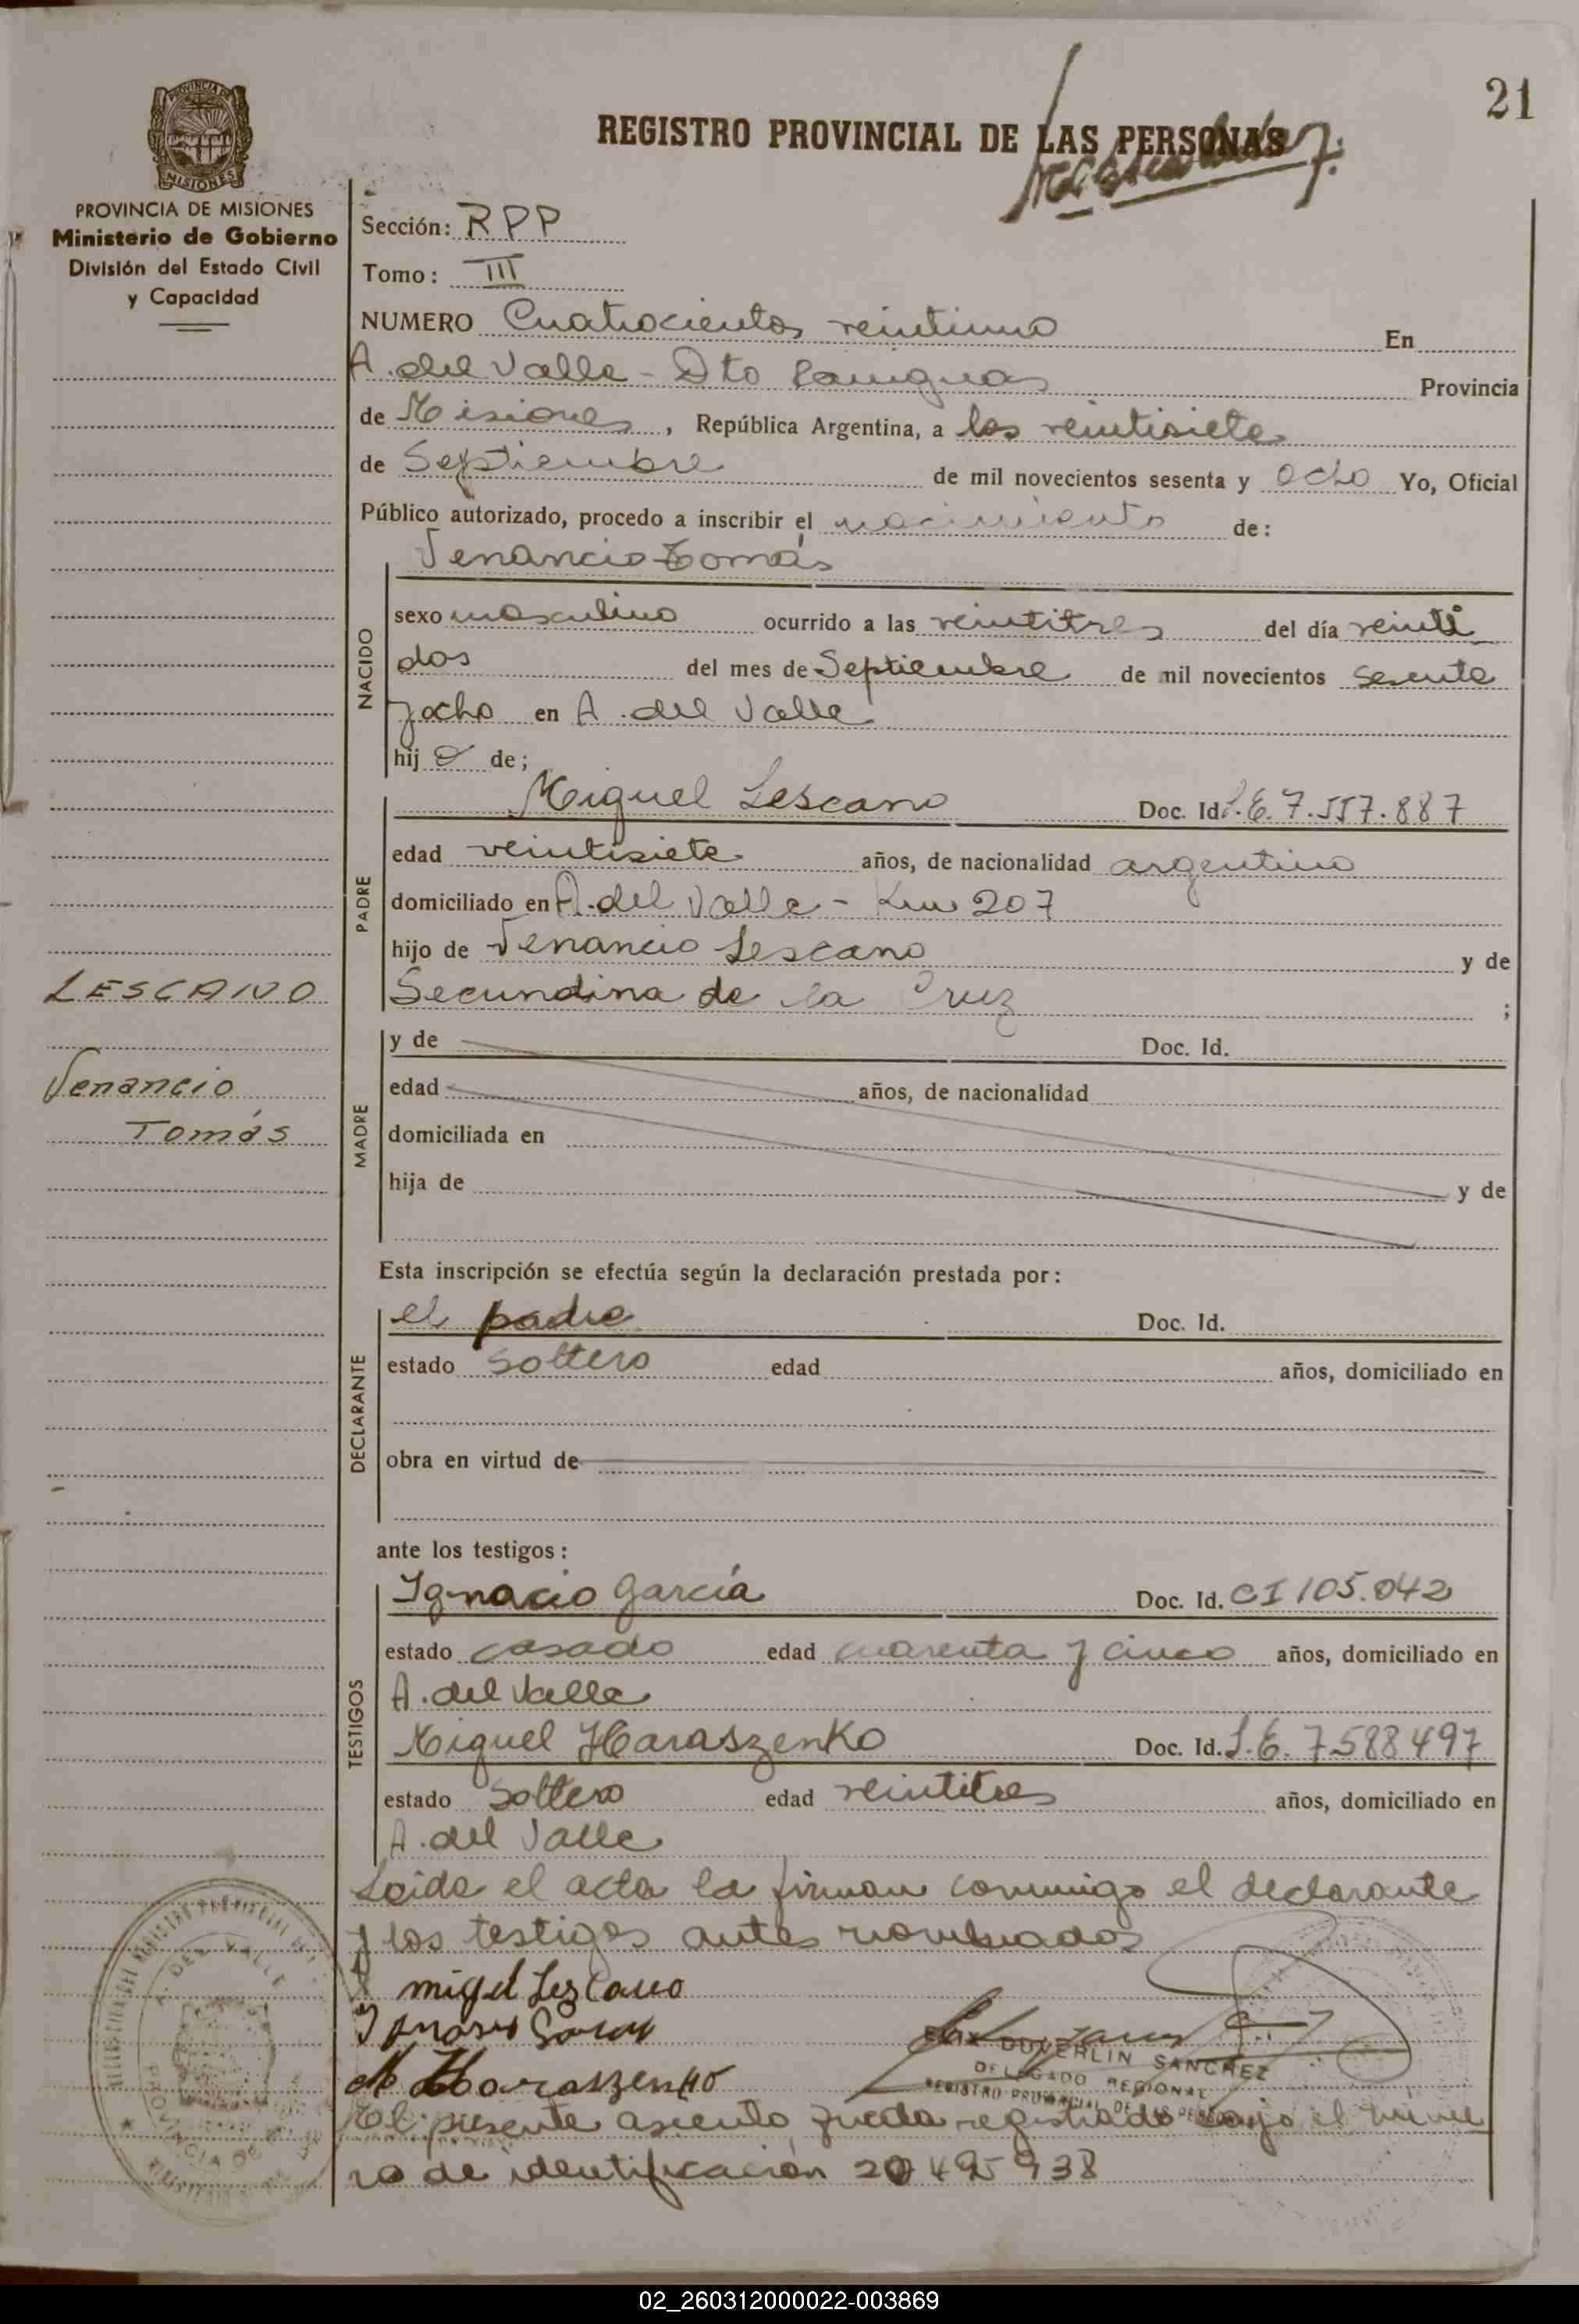 21
REGISTRO PROVINCIAL DE LAS PERSONAS
PROVINCIA DE MISIONES
Ministerio de Gobierno
División del Estado Civil
y Capacidad
Sección: RPP
Tomo: III
NUMERO Cuatrocientos veintiuno En
A. del Valle - Dto Cainguas Provincia
de Misiones, República Argentina, a los veintisiete
de Septiembre de mil novecientos sesenta y ocho Yo, Oficial
Público autorizado, procedo a inscribir el nacimiento de:
Venancio Tomás
NACIDO
sexo masculino ocurrido a las veintitres del día veinti
dos del mes de Septiembre de mil novecientos sesenta
y ocho en A. del Valle
hijo de;
PADRE
Miguel Lescano Doc. Id. L.E. 7.557.887
edad veintisiete años, de nacionalidad argentino
domiciliado en A. del Valle - Km 207
hijo de Venancio Lescano y de
Secundina de la Cruz ;
LESCANO
Venancio
Tomás
MADRE
y de Doc. Id.
edad años, de nacionalidad
domiciliada en
hija de y de
Esta inscripción se efectúa según la declaración prestada por:
DECLARANTE
el padre Doc. Id.
estado soltero edad años, domiciliado en
obra en virtud de
ante los testigos:
TESTIGOS
Ignacio García Doc. Id. CI 105.042
estado casado edad cuarenta y cinco años, domiciliado en
A. del Valle
Miguel Haraszenko Doc. Id. L.E. 7588497
estado soltero edad veintitres años, domiciliado en
A. del Valle
Leida el acta la firman conmigo el declarante
y los testigos antes nombrados
migel Lescano
M Haraszenko
DUVERLIN SANCHEZ
DELEGADO REGIONAL
REGISTRO PROVINCIAL DE LAS PERSONAS
A. DEL VALLE
PROVINCIA DE
El presente asiento queda registrado bajo el núme
ro de identificación 20 495 938
02_260312000022-003869